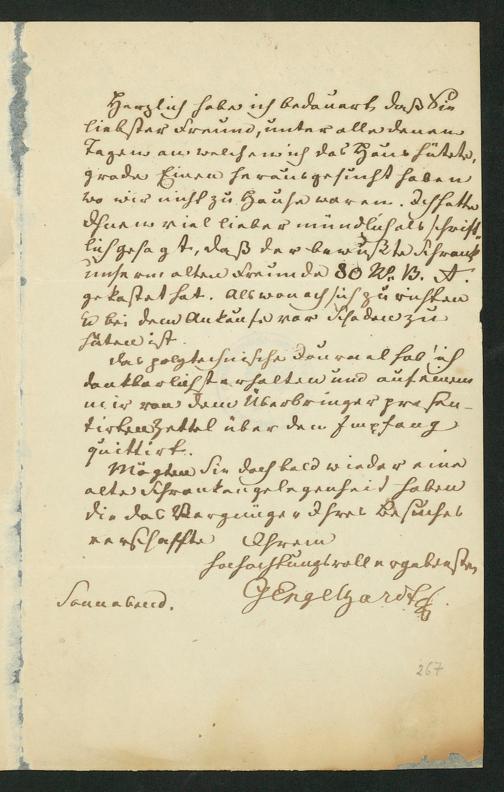 Herzlich habe ich bedauert, daß Sie
liebster Freund, unter alle denen
Tagen an welchen ich das Haus hütete,
grade Einen herausgesucht haben
wo wir nicht zu Hause waren. Ich hätte
Ihnen viel lieber mündlich als schrift-
lich gesagt, daß der bewußte Schrank
unserm alten Freunde 80 R. B. A.
gekostet hat. Als wonach sich zu richten
u bei dem Ankaufe vor Schaden zu
hüten ist.
Das polytechnische Journal hab ich
dankbarlichst erhalten und auf einem
mir von dem Überbringer presen-
tirten Zettel über den Empfang
quittirt.
Mögten Sie doch bald wieder eine
alte Schrankangelegenheid haben
die das Vergnügen Ihres Besuches
verschaffte Ihrem
hochachtungsvoll ergebensten
GEngelhardt
Sonnabend.
267